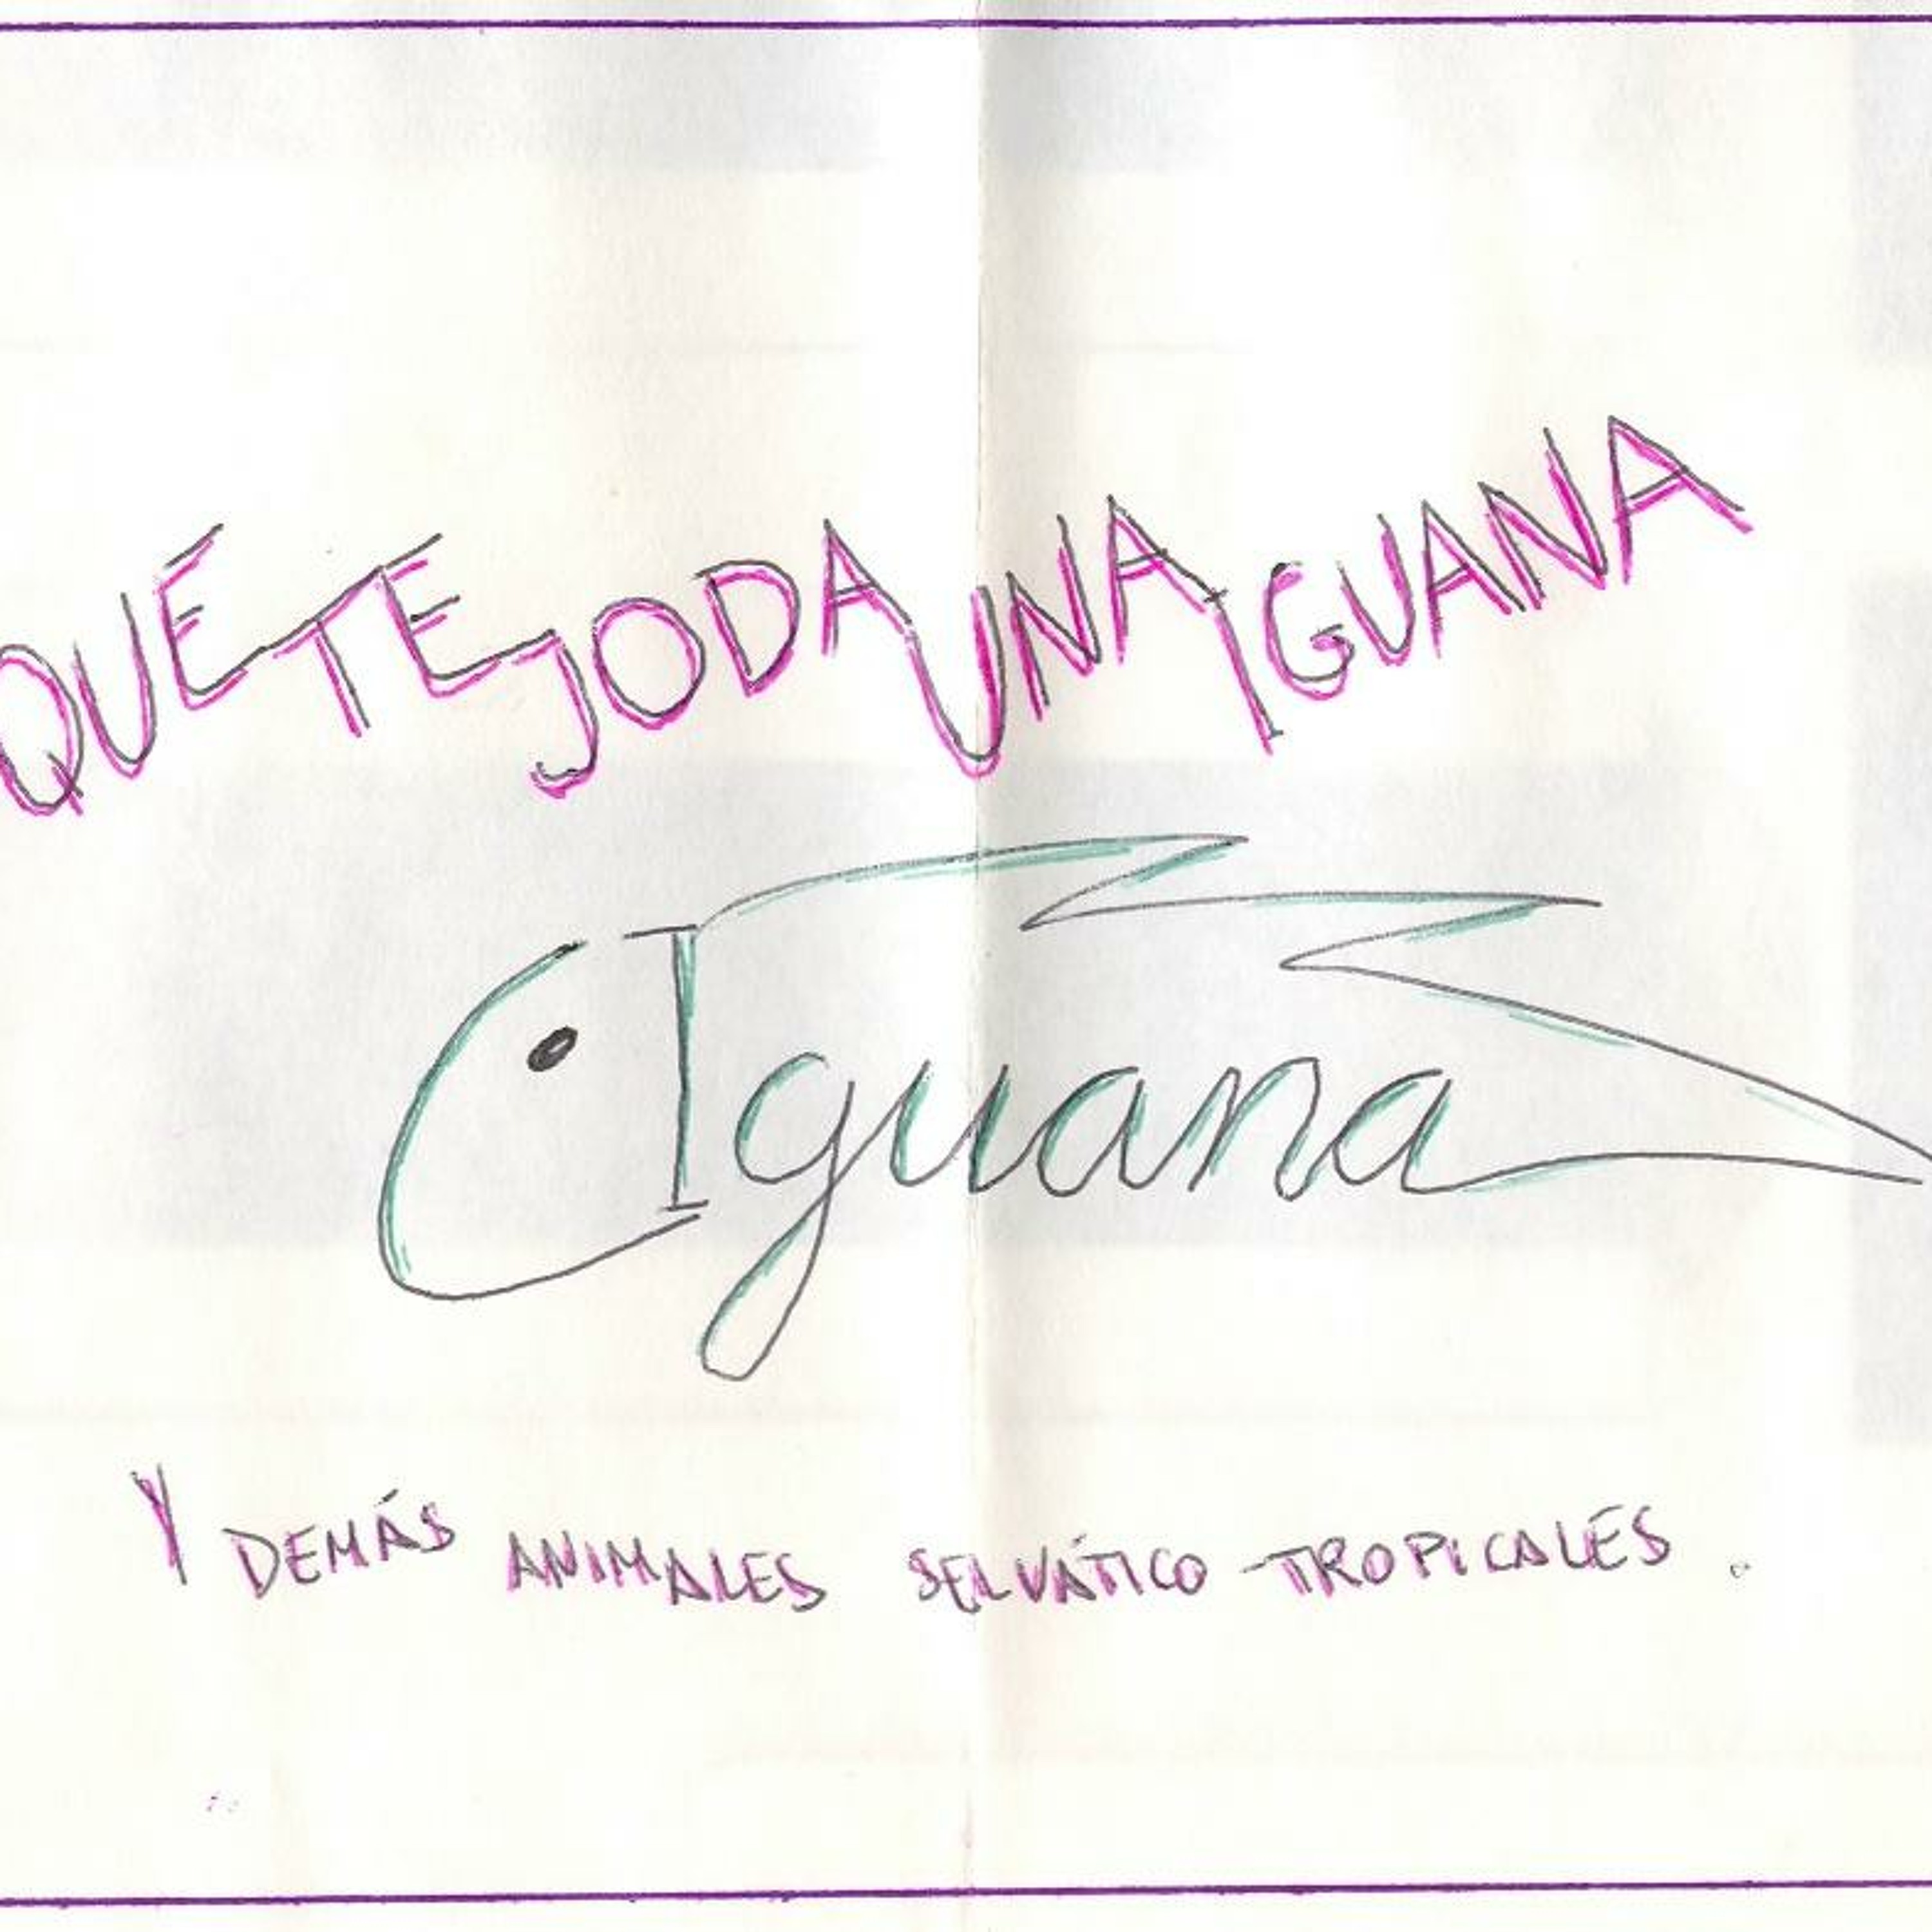 QUE TE JODA UNA IGUANA
Iguana
Y DEMÁS ANIMALES SELVÁTICO-TROPICALES.